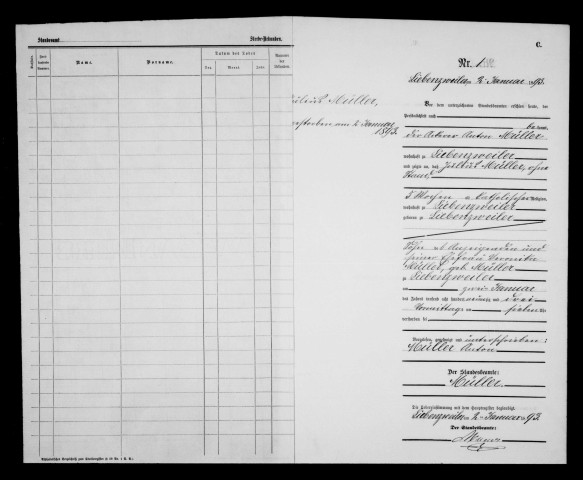 Standesamt
Sterbe-Urkunden.
Name.
Vorname.
Datum des Todes
Tag.
Monat.
Jahr.
Müller,
gestorben am 2 Januar
1893.
C.
Nr. 1
Liebenzweiler 2 Januar 93.
Vor dem unterzeichneten Standesbeamten erschien heute, der
Persönlichkeit nach
kannt,
der Ackerer Anton Müller
wohnhaft zu Liebenzweiler
und zeigte an, daß Julius Müller, ohne
Stand,
5 Wochen a Katholischer Religion,
wohnhaft zu Liebenzweiler
geboren zu Liebenzweiler
Sohn des Anzeigenden und
seiner Ehefrau Veronika
Müller, geb. Müller
zu Liebenzweiler
am zwei Januar
des Jahres tausend acht hundert neunzig und drei
Vormittags um sieben Uhr
verstorben sei
Vorgelesen, genehmigt und unterschrieben:
Müller Anton
Der Standesbeamte:
Müller.
Die Uebereinstimmung mit dem Hauptregister beglaubigt.
Liebenzweiler 2 Januar 93.
Der Standesbeamte: